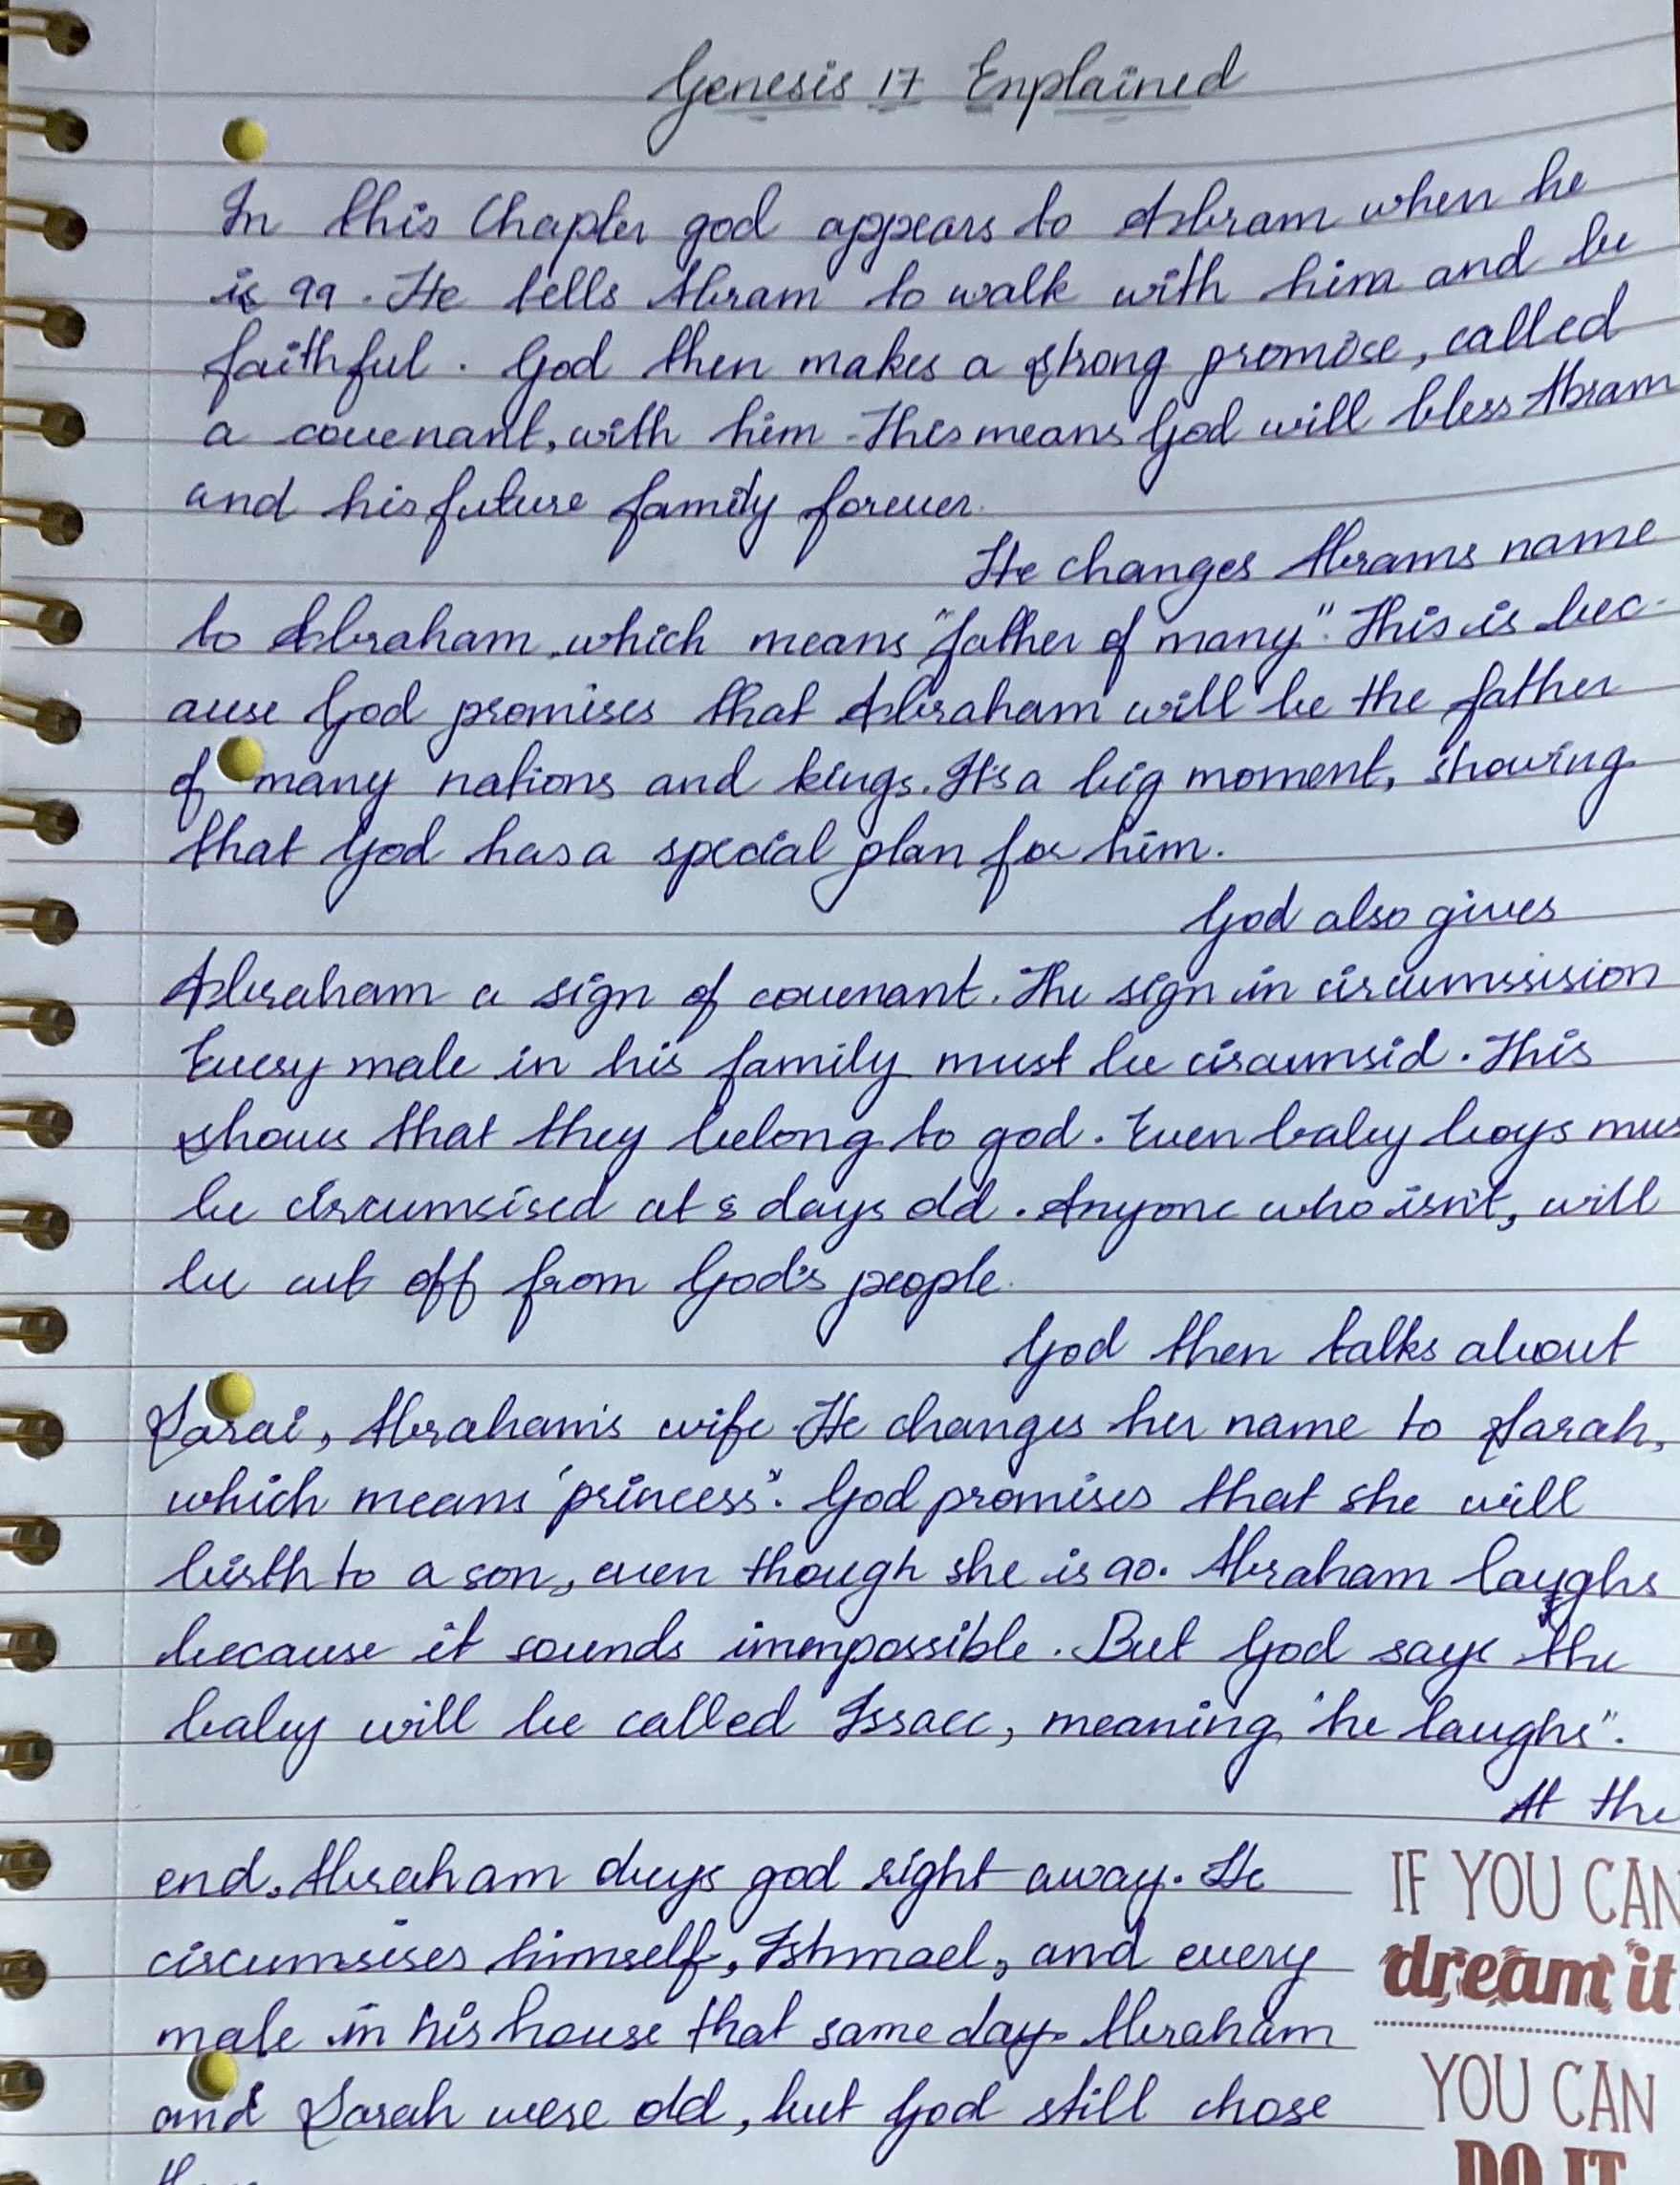 Genesis 17 Enplained
In this Chapter god appears to Abram when he
is 99. He tells Abram to walk with him and be
faithful. God then makes a strong promise, called
a covenant, with him. This means God will bless Abram
and his future family forever.
He changes Abrams name
to Abraham, which means "father of many". This is bec-
ause God promises that Abraham will be the father
of many nations and kings. It's a big moment, showing
that God has a special plan for him.
God also gives
Abraham a sign of covenant. The sign in circumssision
Every male in his family must be circumsid. This
shows that they belong to god. Even baby boys mus
be circumsised at 8 days old. Anyone who isn't, will
be cut off from God's people.
God then talks about
Sarai, Abraham's wife. He changes her name to Sarah,
which means "princess". God promises that she will
birth to a son, even though she is 90. Abraham laughs
because it sounds immpossible. But God says the
baby will be called Issacc, meaning "he laughs".
At the
end, Abraham god right away. He
circumsises himself, Ishmael, and every
male in his house that same day. Abraham
and Sarah were old, but God still chose
IF YOU CAN
dream it
YOU CAN
DO IT